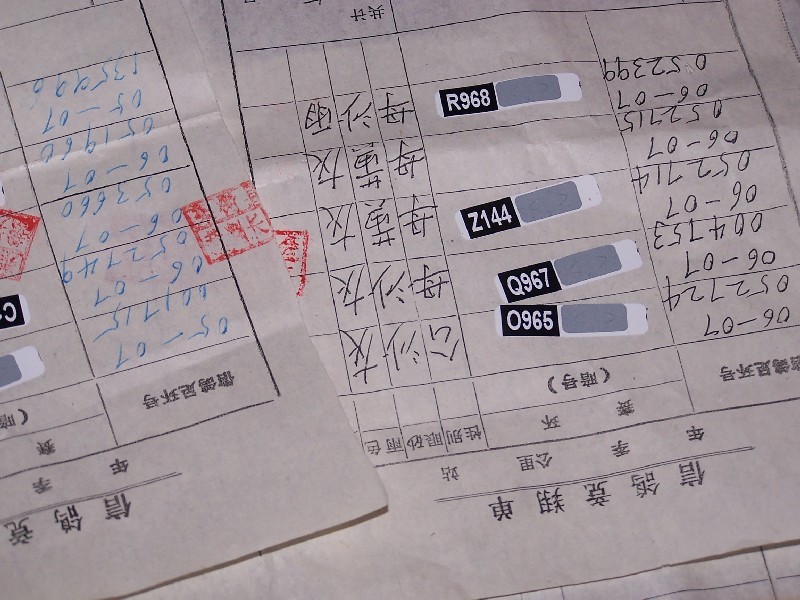 信鸽竞翔单
年 季 公里 站
信鸽足环号 赛环 (暗号) 性别 眼砂 雨色
06-07
052724 O965 公 沙 灰
06-07
004753 Q967 母 沙 灰
06-07
052714 Z144 母 黄 灰
06-07
052715 母 黄 灰
06-07
052399 R968 母 沙 雨
共计
信鸽竞
年 季
信鸽足环号 赛 (暗
05-07
001715
06-07
052749
06-07
053660
06-07
051960
05-07
135996